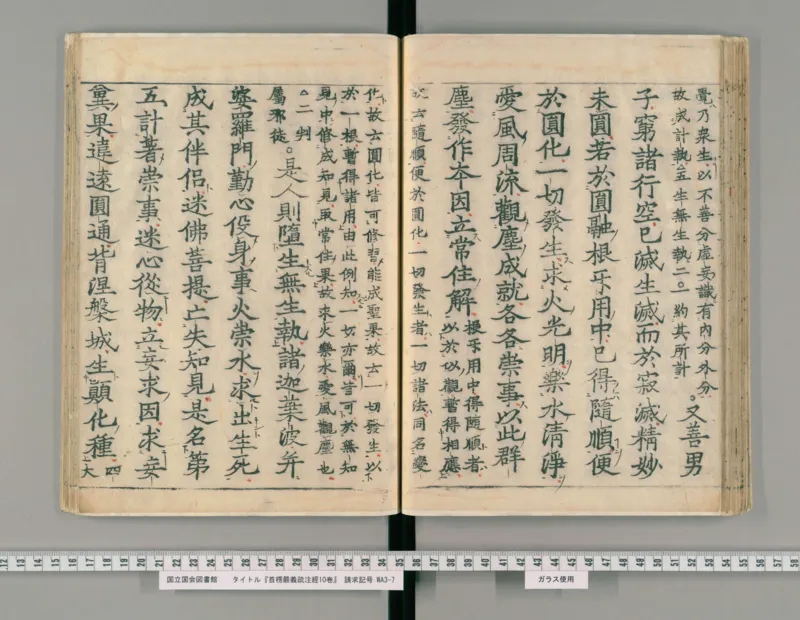 覺乃衆生以不善分虛妄識有內分外分
故成計執五生無生執二。約其所計
。又善男
子窮諸行空已滅生滅而於寂滅精妙
未圓若於圓融根互用中已得隨順便
於圓化一切發生求火光明樂水清淨
愛風周流觀塵成就各各崇事以此群
塵發作本因立常住解
根互用中得隨順者
以於似觀暫得相應
故云隨順便於圓化一切發生者一切諸法同名變
化故云圓化皆可修習能成聖果故云一切發生以
於一根暫得諸用由此例知一切亦爾皆可於無知
見中修成知見取常住果故求火樂水愛風觀塵也
○二判
屬邪徒
。是人則墮生無生執諸迦葉波并
婆羅門勤心役身事火崇水求出生死
成其伴侶迷佛菩提亡失知見是名第
五計著崇事迷心從物立妄求因求妄
冀果違遠圓通背涅槃城生顛化種
四
大
国立国会図書館 タイトル『首楞嚴義疏注經10巻』 請求記号 WA3-7
ガラス使用